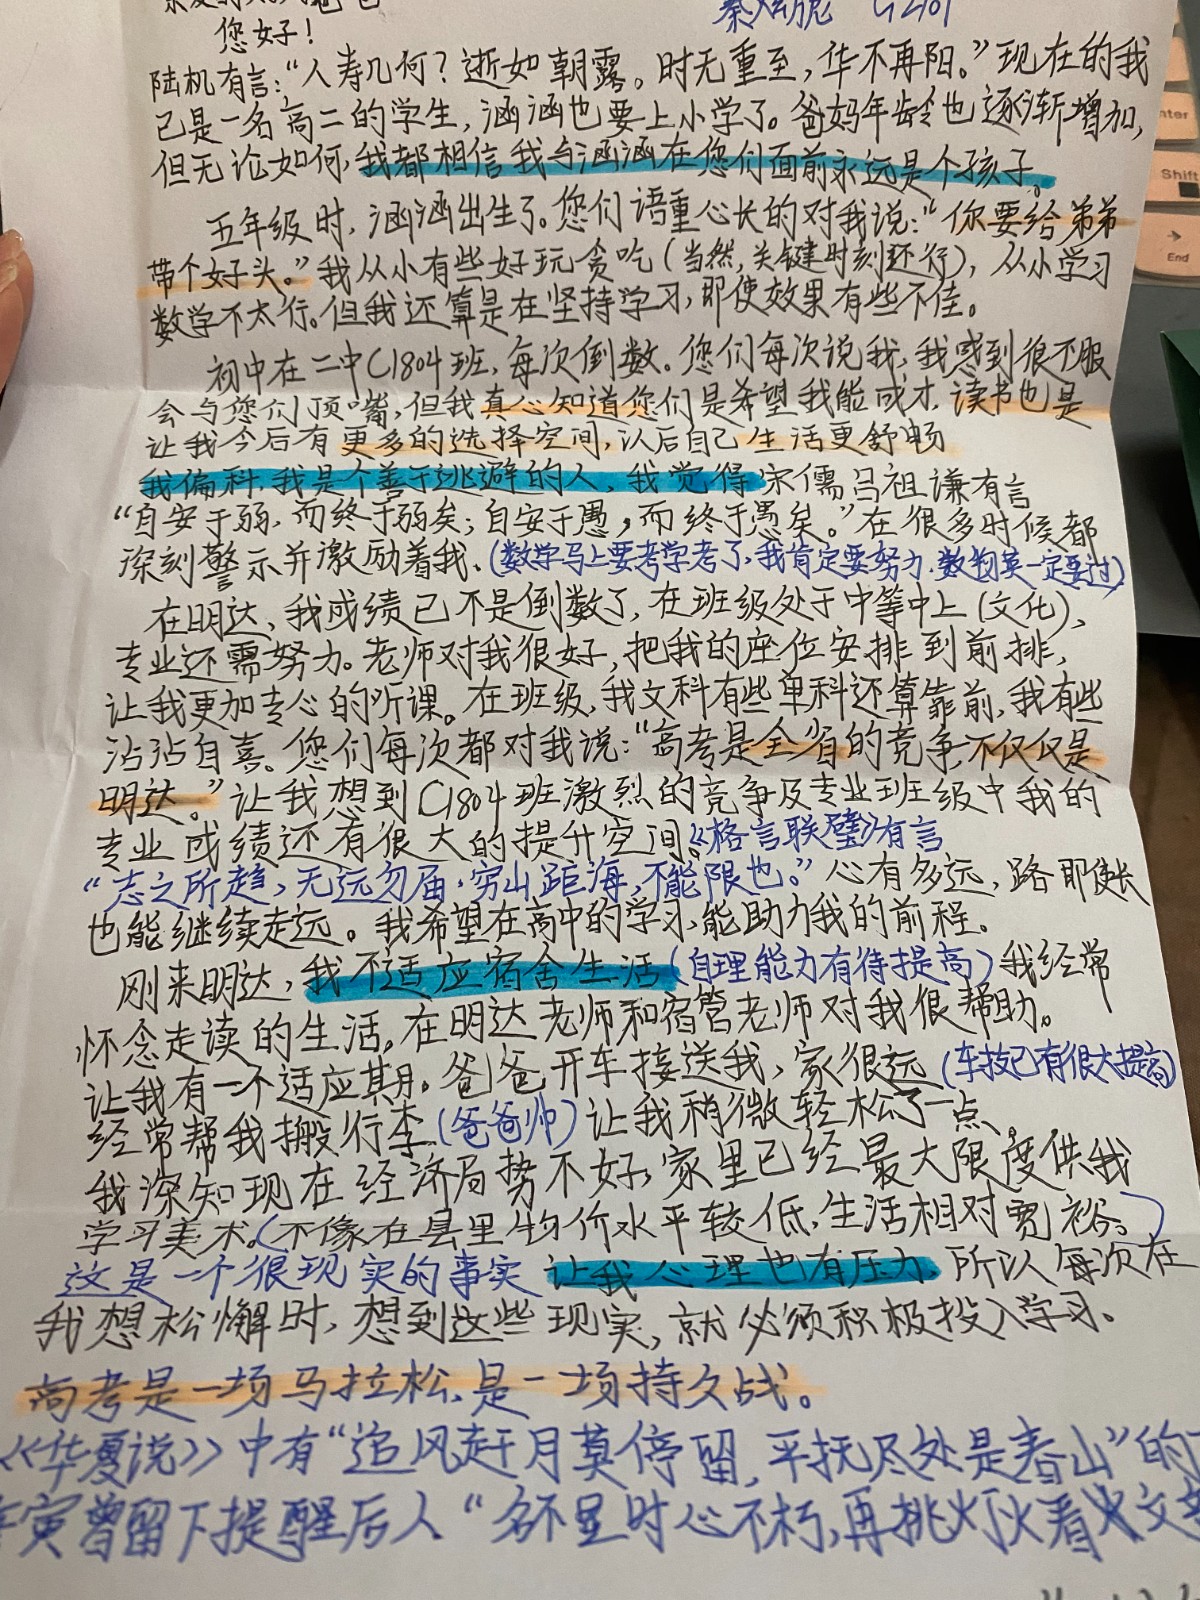 您好!
陆机有言:“人寿几何?逝如朝露。时无重至,华不再阳。”现在的我
已是一名高二的学生,涵涵也要上小学了。爸妈年龄也逐渐增加,
但无论如何,我都相信我与涵涵在您们面前永远是个孩子。
五年级时,涵涵出生了。您们语重心长的对我说:“你要给弟弟
带个好头。”我从小有些好玩贪吃(当然,关键时刻还行),从学习
数学不太行。但我还算是在坚持学习,即使效果有些不佳。
初中在二中C1804班,每次倒数。您们每次说我,我感到很不服
会与您们顶嘴,但我真心知道您们是希望我能成才,读书也是
让我今后有更多的选择空间,以后自己生活更舒畅
我偏科,我是个善于逃避的人,我觉得宋儒吕祖谦有言
“自安于弱,而终于弱矣;自安于愚,而终于愚矣。”在很多时候都
深刻警示并激励着我。(数学马上要考学考了,我肯定要努力,数物英一定要过)
在明达,我成绩已不是倒数了,在班级处于中等中上(文化),
专业还需努力。老师对我很好,把我的座位安排到前排,
让我更加专心的听课。在班级,我文科有些单科还算靠前,我有些
沾沾自喜。您们每次都对我说:“高考是全省的竞争,不仅仅是
明达。”让我想到C1804班激烈的竞争及专业班级中我的
专业成绩还有很大的提升空间。《格言联璧》有言
“志之所趋,无远勿届,穷山距海,不能限也。”心有多远,路即使长
也能继续走远。我希望在高中的学习,能助力我的前程。
刚来明达,我不适应宿舍生活(自理能力有待提高)我经常
怀念走读的生活。在明达老师和宿管老师对我很帮助。
让我有一个适应期。爸爸开车接送我,家很远(车技已有很大提高)
经常帮我搬行李(爸爸帅)让我稍微轻松了一点。
我深知现在经济局势不好,家里已经最大限度供我
学习美术。(不像在县里物价水平较低,生活相对宽裕。)
这是一个很现实的事实 让我心理也有压力 所以每次在
我想松懈时,想到这些现实,就必须积极投入学习。
高考是一场马拉松是一场持久战。
《华夏说》中有“追风赶月莫停留,平芜尽处是春山”的